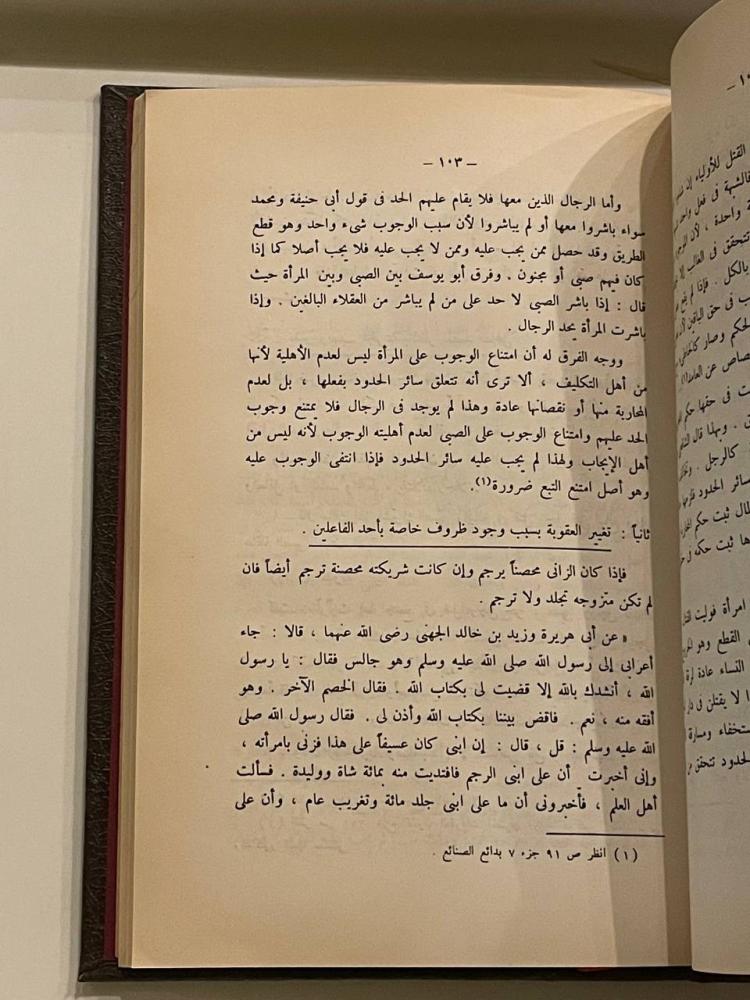 — ١٠٣ —
وأما الرجال الذين معها فلا يقام عليهم الحد فى قول أبى حنيفة ومحمد
سواء باشروا معها أو لم يباشروا لأن سبب الوجوب شىء واحد وهو قطع
الطريق وقد حصل ممن يجب عليه وممن لا يجب عليه فلا يجب أصلا كما إذا
كان فيهم صبى أو مجنون . وفرق أبو يوسف بين الصبى وبين المرأة حيث
قال : إذا باشر الصبى لا حد على من لم يباشر من العقلاء البالغين . وإذا
باشرت المرأة يحد الرجال .
ووجه الفرق له أن امتناع الوجوب على المرأة ليس لعدم الأهلية لأنها
من أهل التكليف ، ألا ترى أنه تتعلق سائر الحدود بفعلها ، بل لعدم
المحاربة منها أو نقصانها عادة وهذا لم يوجد فى الرجال فلا يمتنع وجوب
الحد عليهم وامتناع الوجوب على الصبى لعدم أهليته الوجوب لأنه ليس من
أهل الإيجاب ولهذا لم يجب عليه سائر الحدود فإذا انتفى الوجوب عليه
وهو أصل امتنع التبع ضرورة(١).
ثانياً : تغيير العقوبة بسبب وجود ظروف خاصة بأحد الفاعلين .
فإذا كان الزانى محصناً يرجم وإن كانت شريكته محصنة ترجم أيضاً فان
لم تكن متزوجه تجلد ولا ترجم .
« عن أبى هريرة وزيد بن خالد الجهنى رضى الله عنهما ، قالا : جاء
أعرابى إلى رسول الله صلى الله عليه وسلم وهو جالس فقال : يا رسول
الله ، أنشدك بالله إلا قضيت لى بكتاب الله . فقال الخصم الآخر . وهو
أفقه منه ، نعم . فاقض بيننا بكتاب الله وأذن لى . فقال رسول الله صلى
الله عليه وسلم : قل ، قال : إن ابنى كان عسيفاً على هذا فزنى بامرأته ،
وإنى أخبرت أن على ابنى الرجم فافتديت منه بمائة شاة ووليدة . فسألت
أهل العلم ، فأخبرونى أن ما على ابنى جلد مائة وتغريب عام ، وأن على
(١) انظر ص ٩١ جزء ٧ بدائع الصنائع .
القتل للأولياء إن
فالشبهة فى فعل واحد
واحدة ، لأن
تتحقق فى الغالب إلا
بالكل . فإذا لم يقع
فى حق الباقين
لحكم وصار كالخاطىء
عن العامد
فى حقها حكم
. وبهذا قال
كالرجل .
سائر الحدود
ثبت حكم
ثبت حكمه فى
امرأة فوليت القتال
القطع وهو
النساء عادة لرقة
لا يقتلن فى دار
ومسارة
الحدود تتحقق من